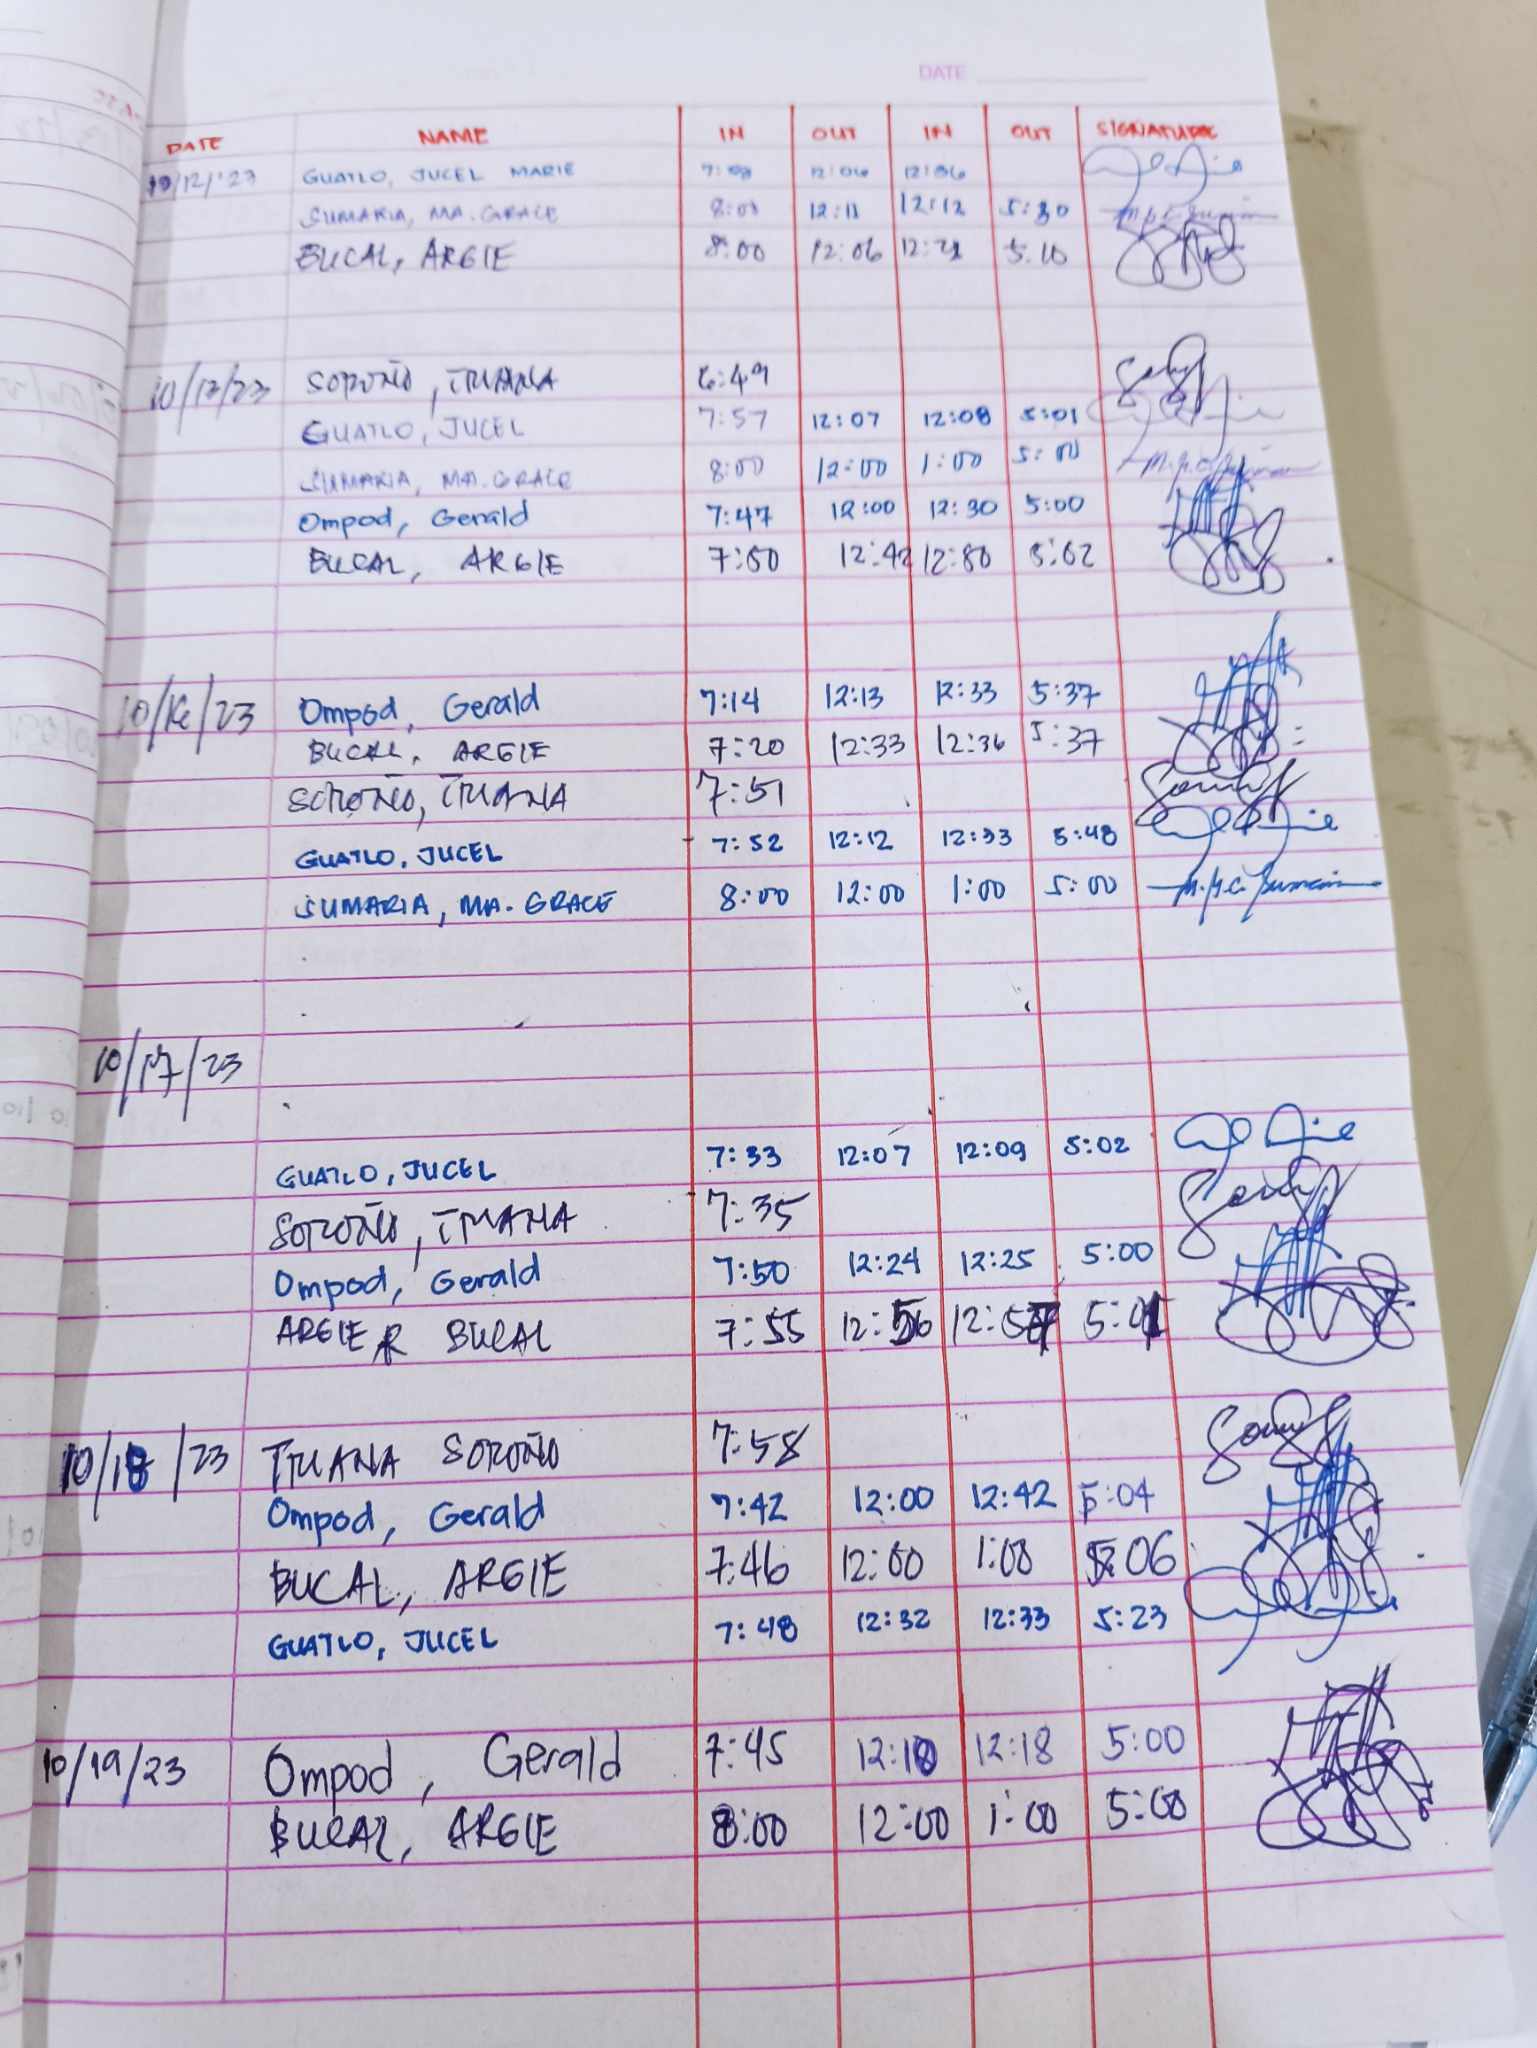 DATE
DATE NAME IN OUT IN OUT SIGNATURE
10/12/'23 GUATLO, JUCEL MARIE 12:06 12:06
SUMARIA, MA. GRACE 12:11 12:12 5:30
BUCAL, ARGIE 8:00 12:06 5:10
SOROÑO, 6:49
GUATLO, JUCEL 7:57 12:07 12:08 5:01
SUMARIA, MA. GRACE 8:00 12:00 1:00 5:00
Ompod, Gerald 7:47 12:00 12:30 5:00
BUCAL, ARGIE 7:50 12:42 5:02
10/16/23 Ompod, Gerald 7:14 12:13 12:33 5:37
BUCAL, ARGIE 7:20 12:33 12:36 5:37
SOROÑO, 7:51
GUATLO, JUCEL 7:52 12:12 12:33 5:48
SUMARIA, MA. GRACE 8:00 12:00 1:00 5:00
10/17/23
GUATLO, JUCEL 7:33 12:07 12:09 5:02
SOROÑO, 7:35
Ompod, Gerald 7:50 12:24 12:25 5:00
ARGIE R BUCAL 7:55 12:56 12:57 5:01
10/18/23 SOROÑO 7:58
Ompod, Gerald 7:42 12:00 12:42 5:04
BUCAL, ARGIE 7:46 12:00 1:00 5:06
GUATLO, JUCEL 7:48 12:32 12:33 5:23
10/19/23 Ompod, Gerald 7:45 12:18 5:00
BUCAL, ARGIE 8:00 12:00 1:00 5:00